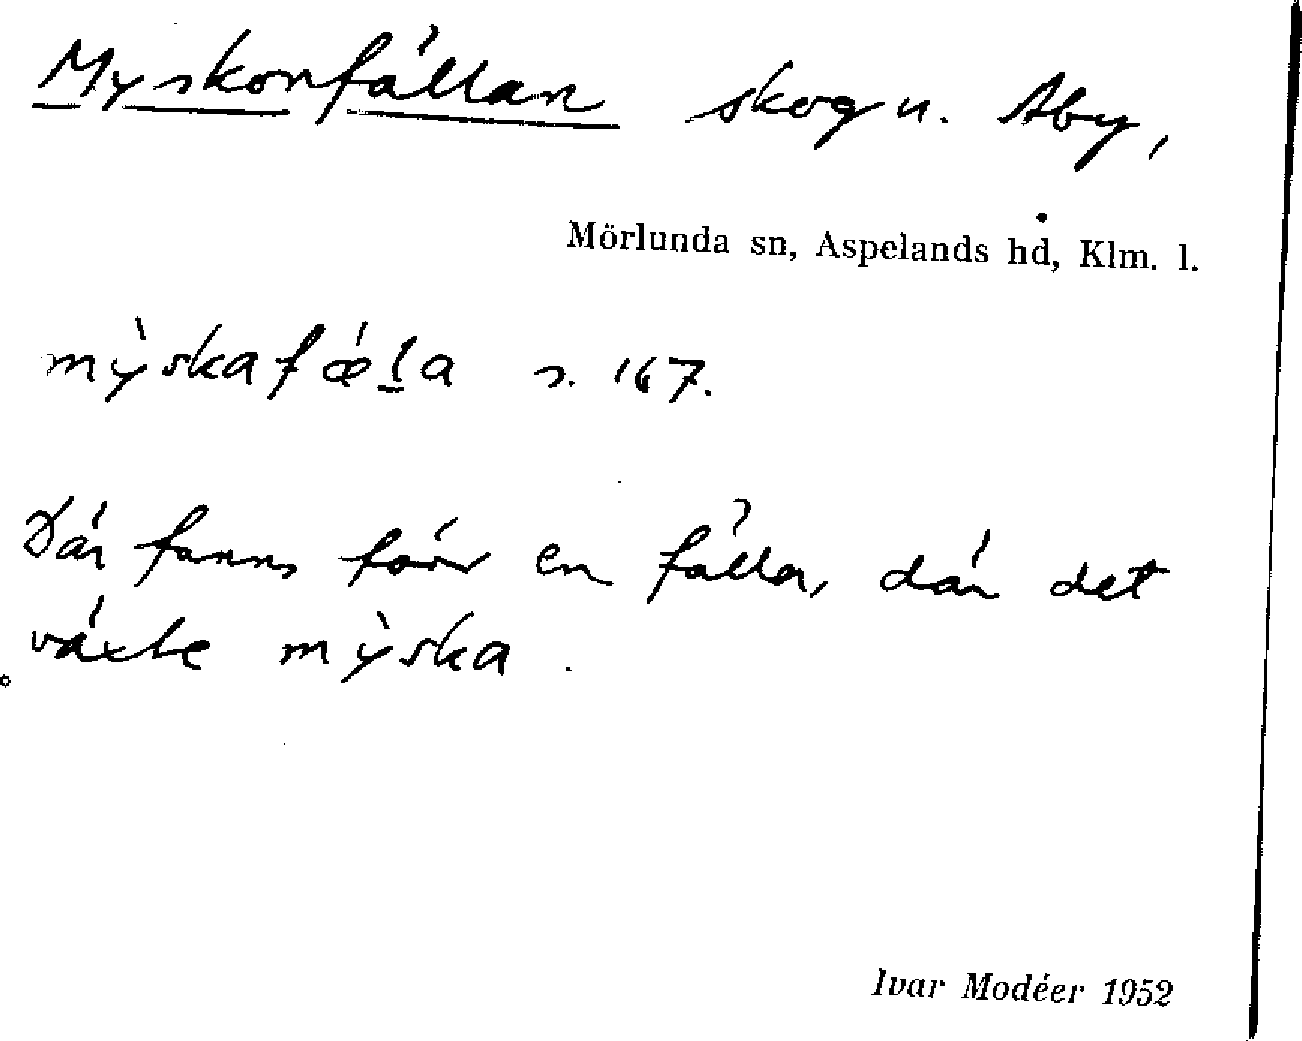 Myskonfällan skog u. Åby,
Mörlunda sn, Aspelands hd, Klm. l.
mỳskafǽḻa s. 167.
Där fanns förr en fålla, där det
växte mỳska.
Ivar Modéer 1952